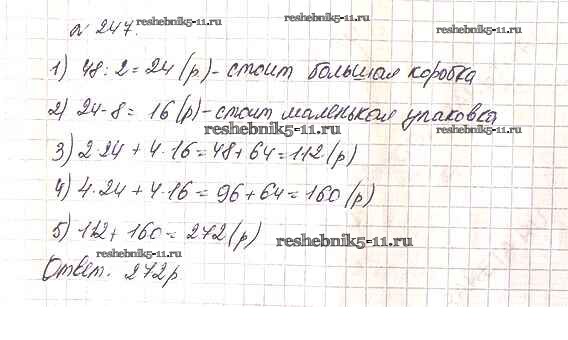 № 247.
reshebnik5-11.ru reshebnik5-11.ru reshebnik5-11.ru
1) 48:2=24 (р)-стоит большая коробка
2) 24-8= 16 (р)-стоит маленькая упаковка
reshebnik5-11.ru reshebnik5-11.ru
3) 2·24+4·16=48+64=112 (р)
4) 4·24+4·16=96+64=160 (р)
5) 112+160=272 (р)
reshebnik5-11.ru
Ответ. 272р
reshebnik5-11.ru